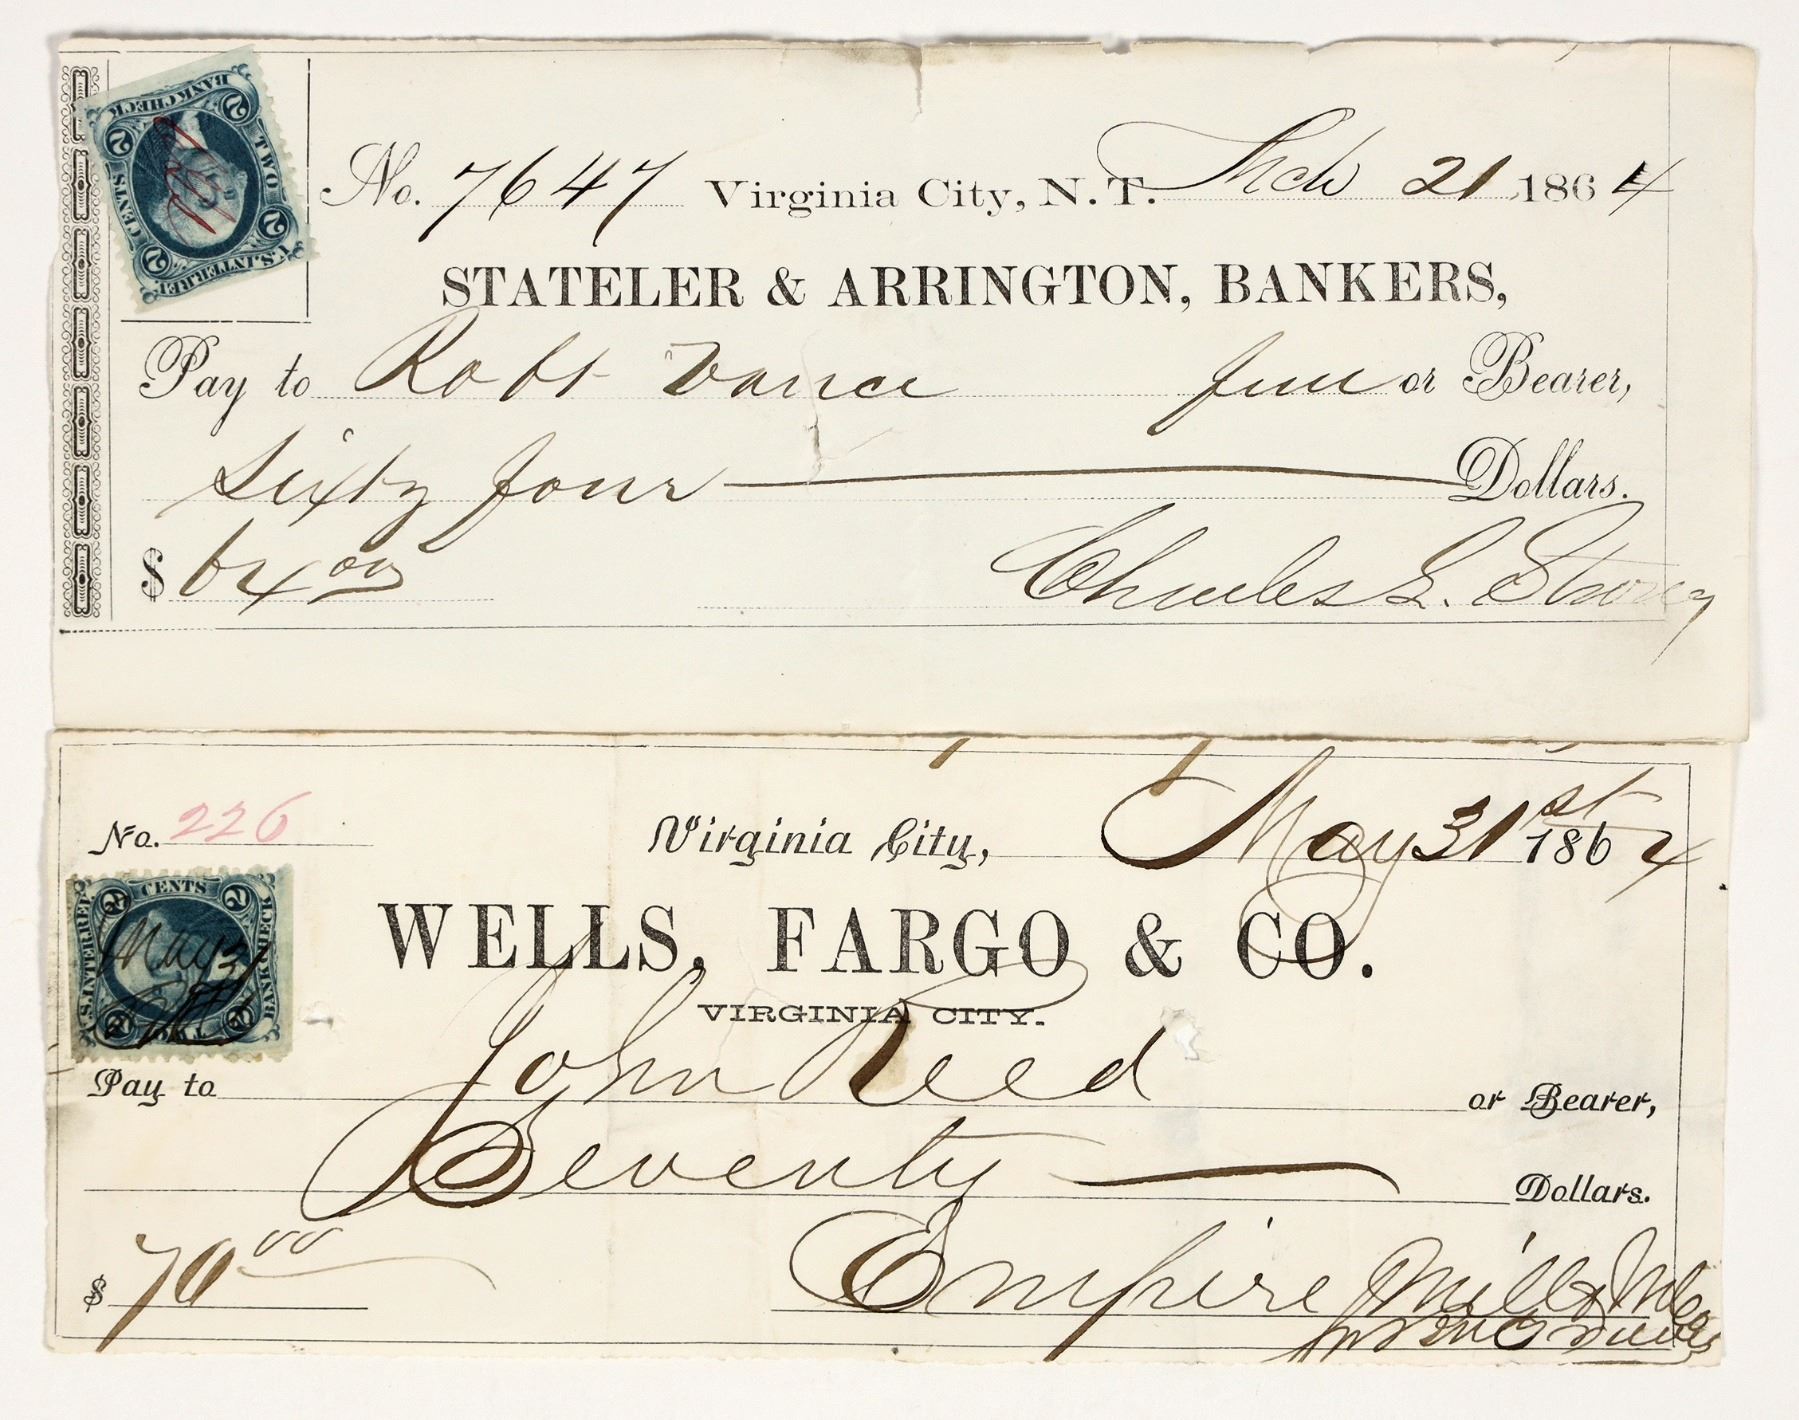 BANK CHECK
2 2
TWO
CENTS
2 2
U.S. INTER. REV.
No. 7647 Virginia City, N. T. Mch 21 1864
STATELER & ARRINGTON, BANKERS,
Pay to Robt Vance or Bearer,
Sixty four Dollars.
$ 64 00 Charles L. Storey
No. 226 Virginia City, May 31st 1864
CENTS
2 2
U.S. INTER. REV.
BANK CHECK
May 31
2 2
TWO
WELLS, FARGO & CO.
VIRGINIA CITY.
Pay to John Reed or Bearer,
Seventy Dollars.
$ 70 00 Empire Mill & M Co